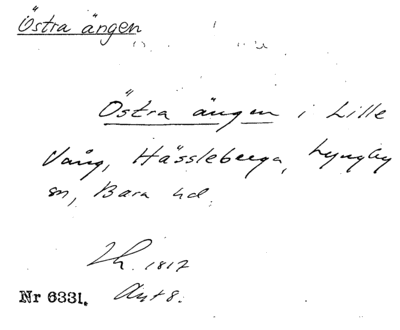 Östra ängen
Östra ängen i Lille
Vång, Hässleberga, Lyngby
sn, Bara hd.
1817
Nr 6331. Akt 8.